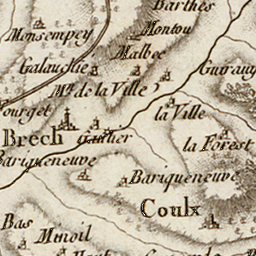 Barthes
Monsempey
Montou
Malbec
Galauchie
Guiraud
Mn. de la Ville
la Ville
Brech
Gautier
la Forest
Bariqueneuve
Bariqueneuve
Coulx
Bas
Minoil